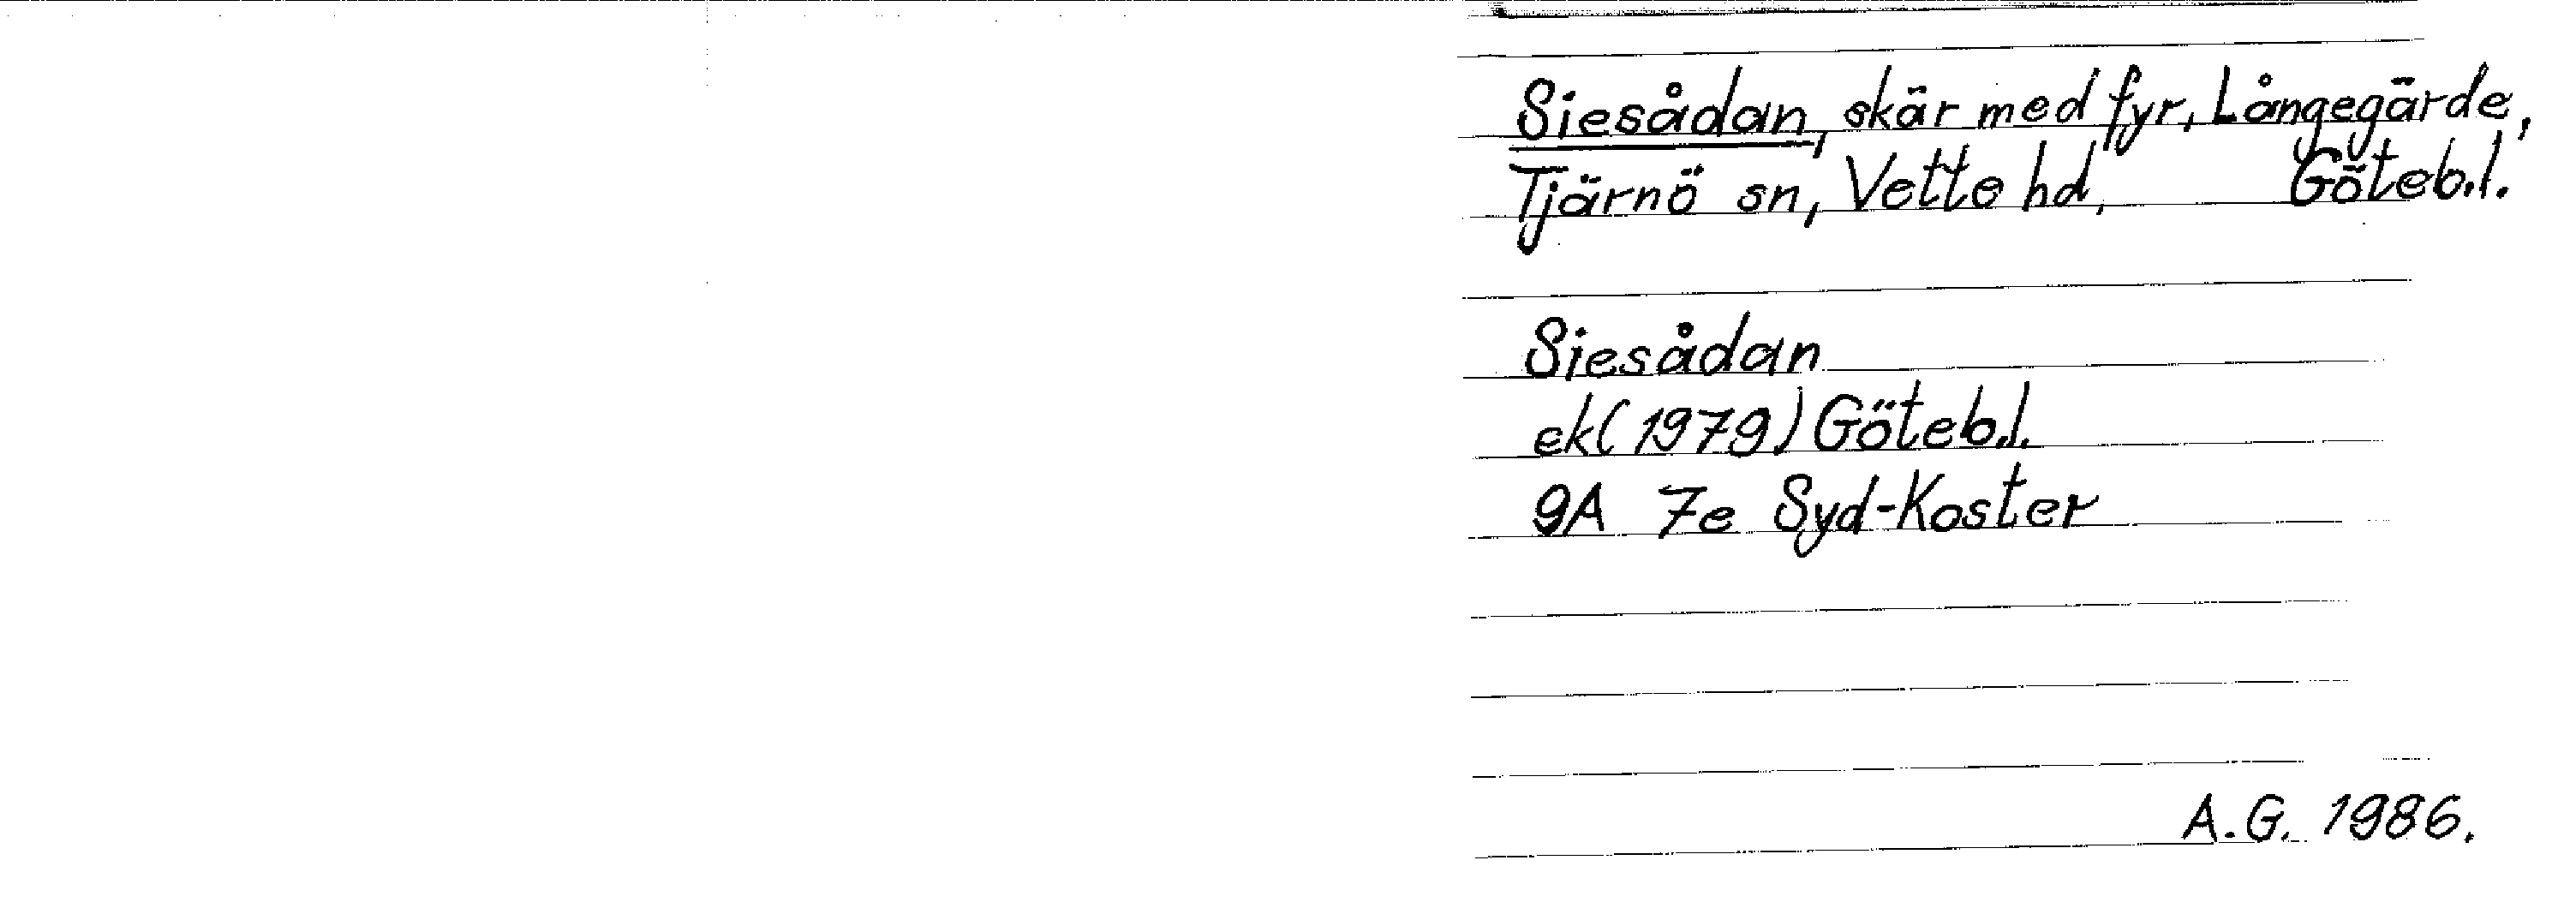 Siesådan, skär med fyr, Långegärde,
Tjärnö sn, Vette hd, Göteb.l.
Siesådan
ek(1979) Göteb.l.
9A 7e Syd-Koster
A.G. 1986.